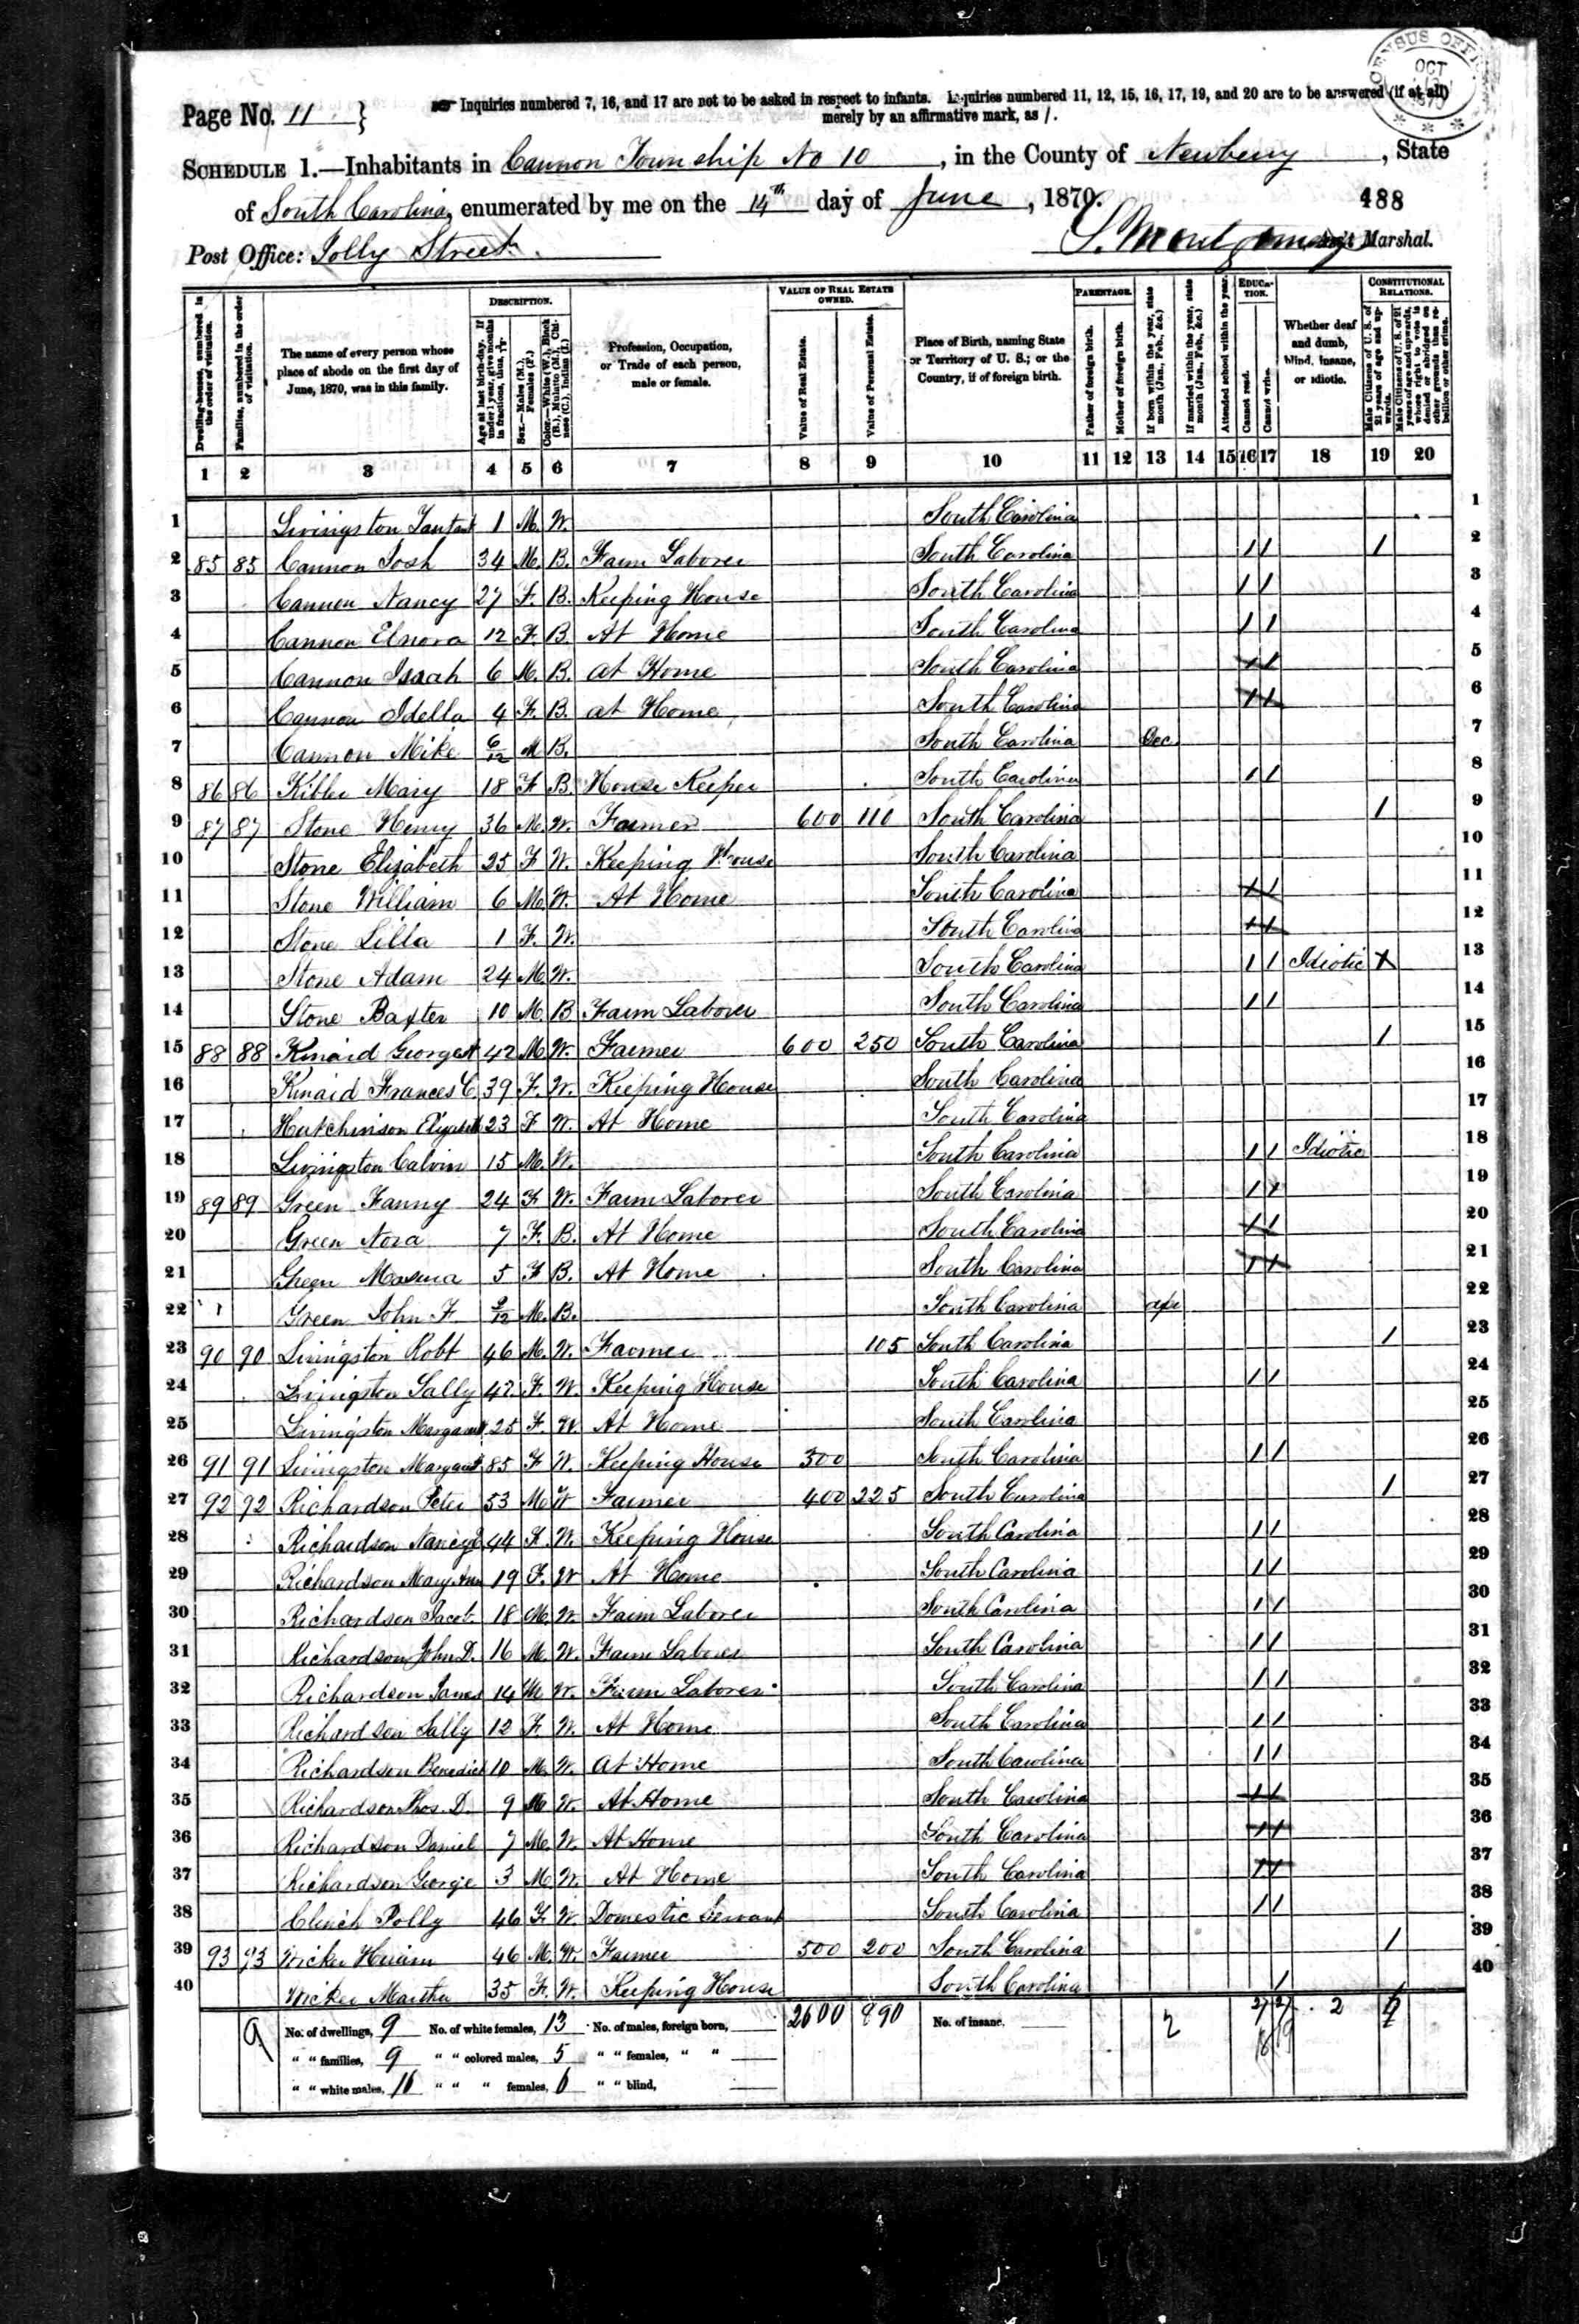 CENSUS OFFICE OCT 1870
Page No. 11 } Inquiries numbered 7, 16, and 17 are not to be asked in respect to infants. Inquiries numbered 11, 12, 15, 16, 17, 19, and 20 are to be answered (if at all)
merely by an affirmative mark, as /.
SCHEDULE 1.—Inhabitants in Cannon Township No 10, in the County of Newberry, State
of South Carolina, enumerated by me on the 14th day of June, 1870. 488
Post Office: Jolly Street. S. Montgomery, Ass't Marshal.
Dwelling-houses, numbered in the order of visitation.
Families, numbered in the order of visitation.
The name of every person whose place of abode on the first day of June, 1870, was in this family.
DESCRIPTION.
Age at last birth-day. If under 1 year, give months in fractions, thus, 3/12
Sex.—Males (M.), Females (F.)
Color.—White (W.), Black (B.), Mulatto (M.), Chinese (C.), Indian (I.)
Profession, Occupation, or Trade of each person, male or female.
VALUE OF REAL ESTATE OWNED.
Value of Real Estate.
Value of Personal Estate.
Place of Birth, naming State or Territory of U. S.; or the Country, if of foreign birth.
PARENTAGE.
Father of foreign birth.
Mother of foreign birth.
If born within the year, state month (Jan., Feb., &c.)
If married within the year, state month (Jan., Feb., &c.)
Attended school within the year.
EDUCATION.
Cannot read.
Cannot write.
Whether deaf and dumb, blind, insane, or idiotic.
CONSTITUTIONAL RELATIONS.
Male Citizens of U. S. of 21 years of age and upwards.
Male Citizens of U. S. of 21 years of age and upwards, whose right to vote is denied or abridged on other grounds than rebellion or other crime.
1 2 3 4 5 6 7 8 9 10 11 12 13 14 15 16 17 18 19 20
1 Livingston 1 M. W. South Carolina 1
2 85 85 Cannon Josh 34 M. B. Farm Laborer South Carolina / / / 2
3 Cannon Nancy 27 F. B. Keeping House South Carolina / / 3
4 Cannon Elnora 12 F. B. At Home South Carolina / / 4
5 Cannon Isaah 6 M. B. at Home South Carolina / / 5
6 Cannon Idella 4 F. B. at Home South Carolina / / 6
7 Cannon Mike 6/12 M B. South Carolina Dec 7
8 86 86 Kibler Mary 18 F B. House Keeper South Carolina / / 8
9 87 87 Stone Henry 36 M. W. Farmer 600 110 South Carolina / 9
10 Stone Elizabeth 25 F W. Keeping House South Carolina 10
11 Stone William 6 M. W. At Home South Carolina / / 11
12 Stone Lilla 1 F. W. South Carolina / / 12
13 Stone Adam 24 M. W. South Carolina / / Idiotic / 13
14 Stone Baxter 10 M. B Farm Laborer South Carolina / / 14
15 88 88 Kinaid George 42 M. W. Farmer 600 250 South Carolina / 15
16 Kinaid Frances C. 39 F. W. Keeping House South Carolina 16
17 Hutchinson Elizabeth 23 F W. At Home South Carolina 17
18 Livingston Calvin 15 M. W. South Carolina / / Idiotic 18
19 89 89 Green Fanny 24 F W. Farm Laborer South Carolina / / 19
20 Green Nora 7 F. B. At Home South Carolina / / 20
21 Green 5 F B. At Home South Carolina / / 21
22 Green John F 2/12 M. B. South Carolina apr 22
23 90 90 Livingston Robt 46 M. W. Farmer 105 South Carolina / 23
24 Livingston Sally 42 F. W. Keeping House South Carolina / / 24
25 Livingston Margaret 25 F. W. At Home South Carolina 25
26 91 91 Livingston Margaret 85 F W. Keeping House 300 South Carolina / / 26
27 92 92 Richardson Peter 53 M. W Farmer 400 225 South Carolina / 27
28 Richardson Nancy 44 F. W. Keeping House South Carolina / / 28
29 Richardson Mary Ann 19 F. W At Home South Carolina / / 29
30 Richardson Jacob 18 M. W. Farm Laborer South Carolina / / 30
31 Richardson John D. 16 M. W. Farm Laborer South Carolina / / 31
32 Richardson James 14 M W. Farm Laborer South Carolina / / 32
33 Richardson Sally 12 F. W. At Home South Carolina / / 33
34 Richardson Benedict 10 M. W. at Home South Carolina / / 34
35 Richardson Thos. D. 9 M W. At Home South Carolina / / 35
36 Richardson Daniel 7 M. W. At Home South Carolina / / 36
37 Richardson George 3 M. W. At Home South Carolina / / 37
38 Polly 46 F. W. Domestic Servant South Carolina / / 38
39 93 93 Wicker Hiram 46 M. W. Farmer 500 200 South Carolina / 39
40 Wicker Martha 35 F. W. Keeping House South Carolina / 40
9 No. of dwellings, 9 No. of white females, 13 No. of males, foreign born, 2600 890 No. of insane, 2 2
" " families, 9 " " colored males, 5 " " females, " " 18 19
" " white males, 16 " " " females, 6 " " blind,